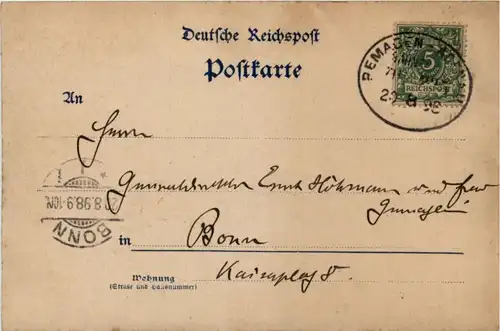 Deutsche Reichspost
Postkarte
REMAGEN
5
REICHSPOST
8 98
An
Herrn
Ernst
und Frau
BONN
8.98.9-10N.
in Bonn
Kaiserplatz 8.
Wohnung
(Strasse und Hausnummer)